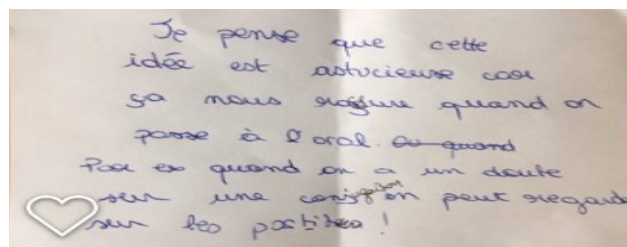 Je pense que cette
idée est astucieuse car
ça nous rassure quand on
passe à l'oral. Ou quand
Par ex quand on a un doute
sur une conjugaison on peut regard
sur les postites !